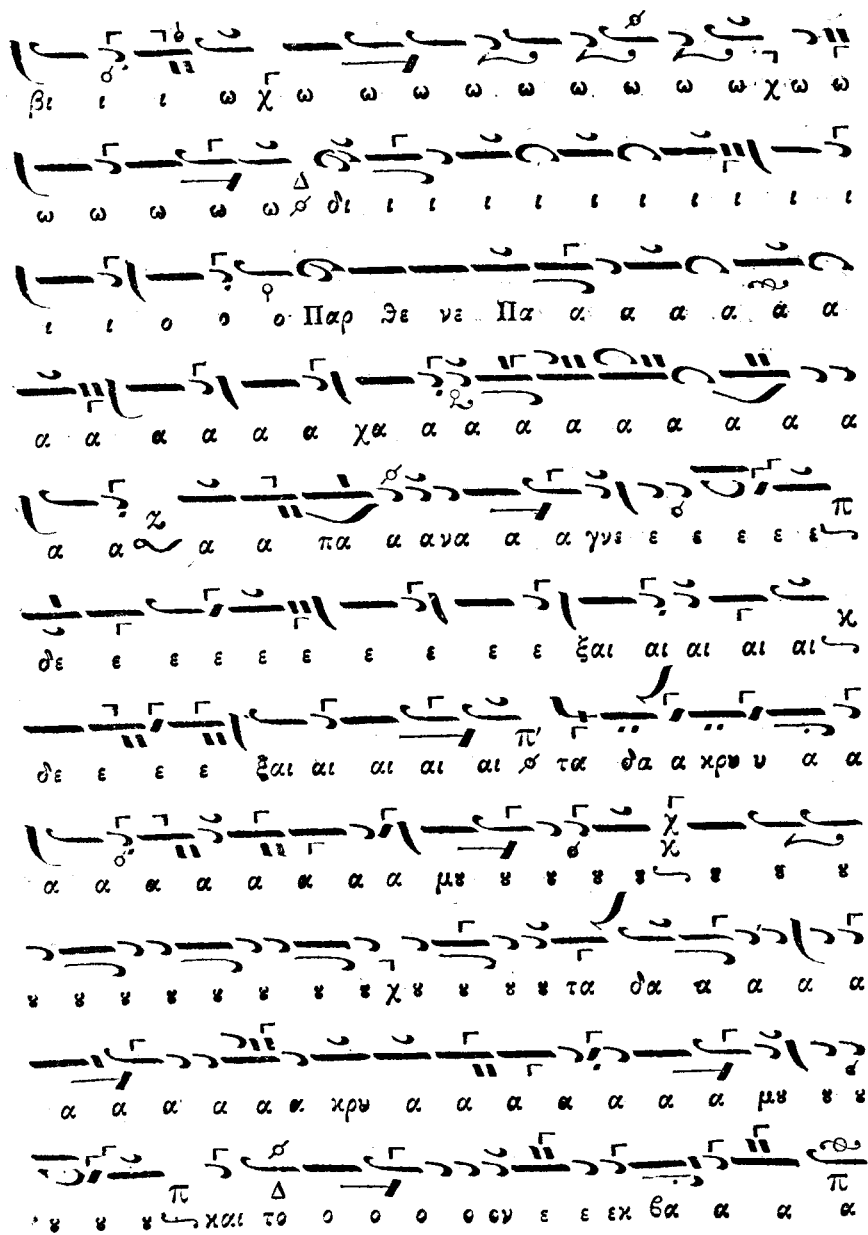 βι ι ι ω χ ω ω ω ω ω ω ω ω ω χ ω ω
ω ω ω ω ω Δ δι ι ι ι ι ι ι ι ι ι
ι ι ο ο ο Παρ θε νε Πα α α α α α α
α α α α α α χα α α α α α α α α α
α α α α πα α ανα α α γνε ε ε ε ε ε π
δε ε ε ε ε ε ε ε ε ε ξαι αι αι αι αι κ
δε ε ε ε ξαι αι αι αι αι π' τα δα α κρυ υ α α
α α α α α α α α μȣ ȣ ȣ ȣ ȣ χ κ ȣ ȣ ȣ
ȣ ȣ ȣ ȣ ȣ ȣ ȣ ȣ χ ȣ ȣ ȣ ȣ τα δα α α α α
α α α α α α κρυ α α α α α α α μȣ ȣ ȣ
ȣ ȣ ȣ π και το Δ ο ο ο ο ον ε ε εκ βα α α α π